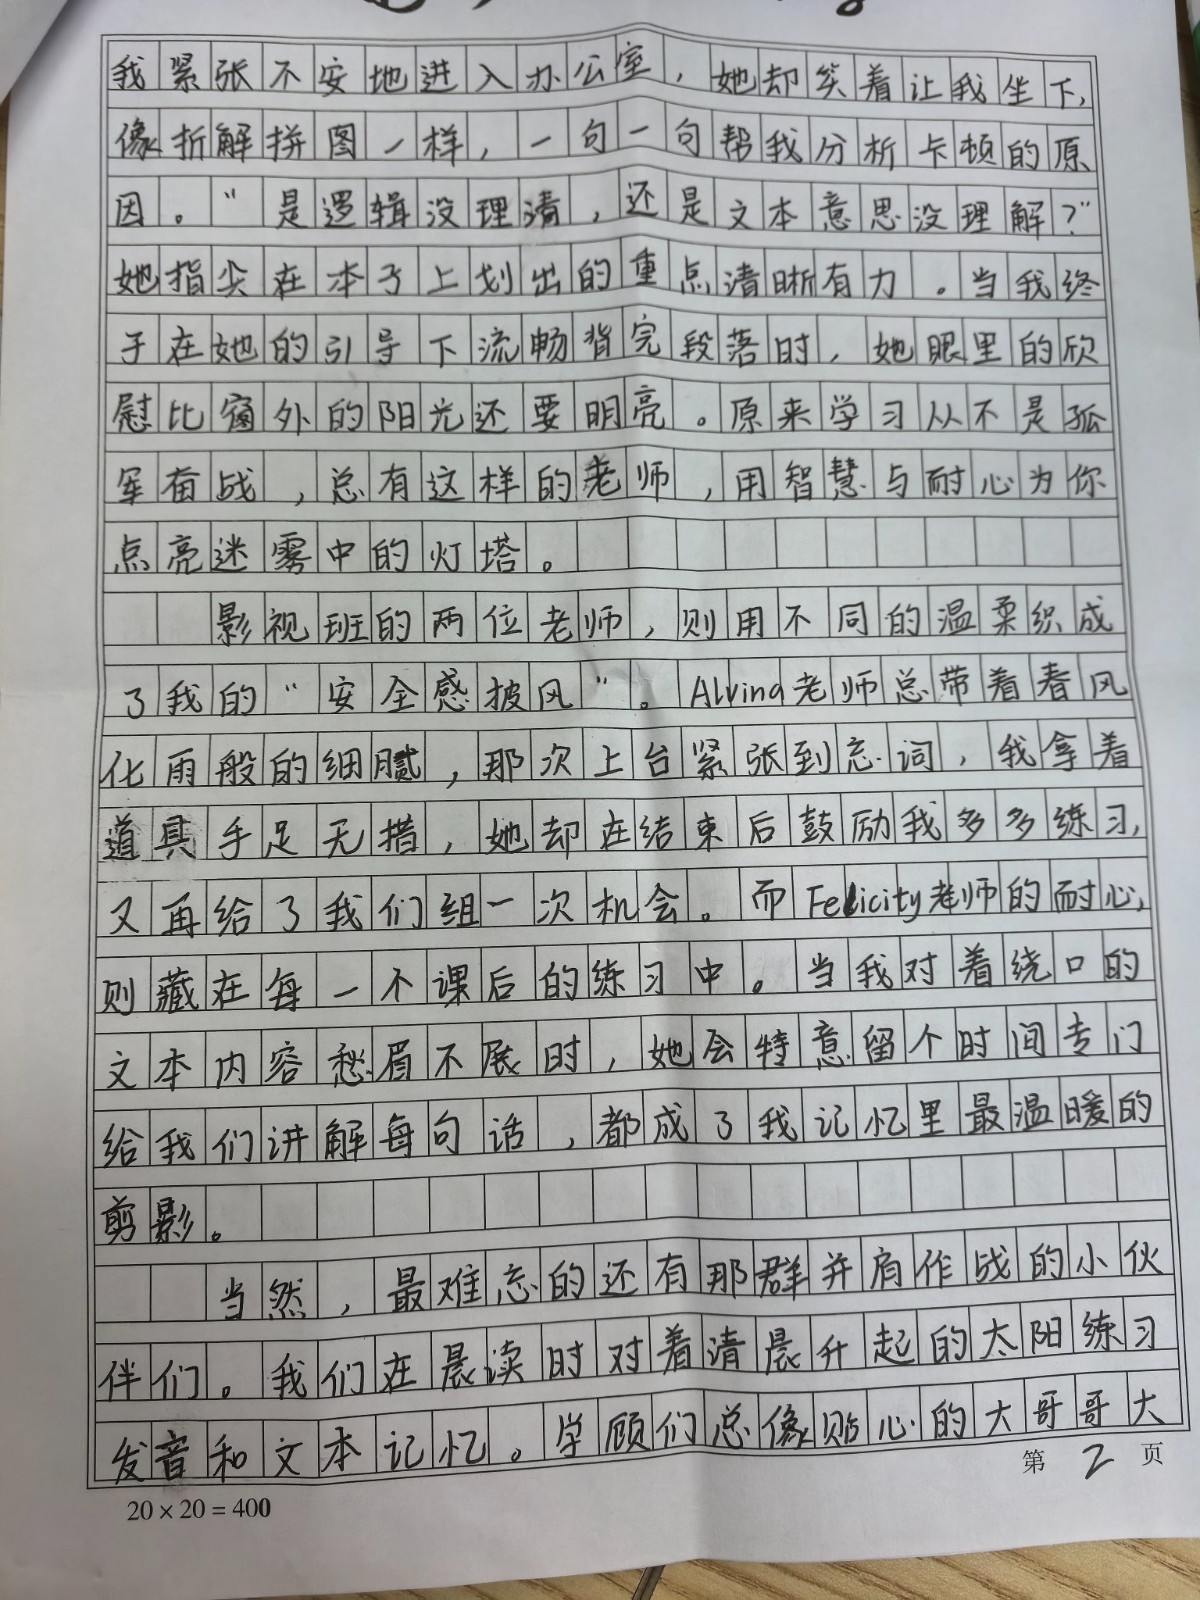 我紧张不安地进入办公室，她却笑着让我坐下，
像折解拼图一样，一句一句帮我分析卡顿的原
因。“是逻辑没理清，还是文本意思没理解？”
她指尖在本子上划出的重点清晰有力。当我终
于在她的引导下流畅背完段落时，她眼里的欣
慰比窗外的阳光还要明亮。原来学习从不是孤
军奋战，总有这样的老师，用智慧与耐心为你
点亮迷雾中的灯塔。
影视班的两位老师，则用不同的温柔织成
了我的“安全感披风”。Alvina老师总带着春风
化雨般的细腻，那次上台紧张到忘词，我拿着
道具手足无措，她却在结束后鼓励我多多练习，
又再给了我们组一次机会。而Felicity老师的耐心，
则藏在每一个课后的练习中。当我对着绕口的
文本内容愁眉不展时，她会特意留个时间专门
给我们讲解每句话，都成了我记忆里最温暖的
剪影。
当然，最难忘的还有那群并肩作战的小伙
伴们。我们在晨读时对着清晨升起的太阳练习
发音和文本记忆。学顾们总像贴心的大哥哥大
第2页
20×20=400